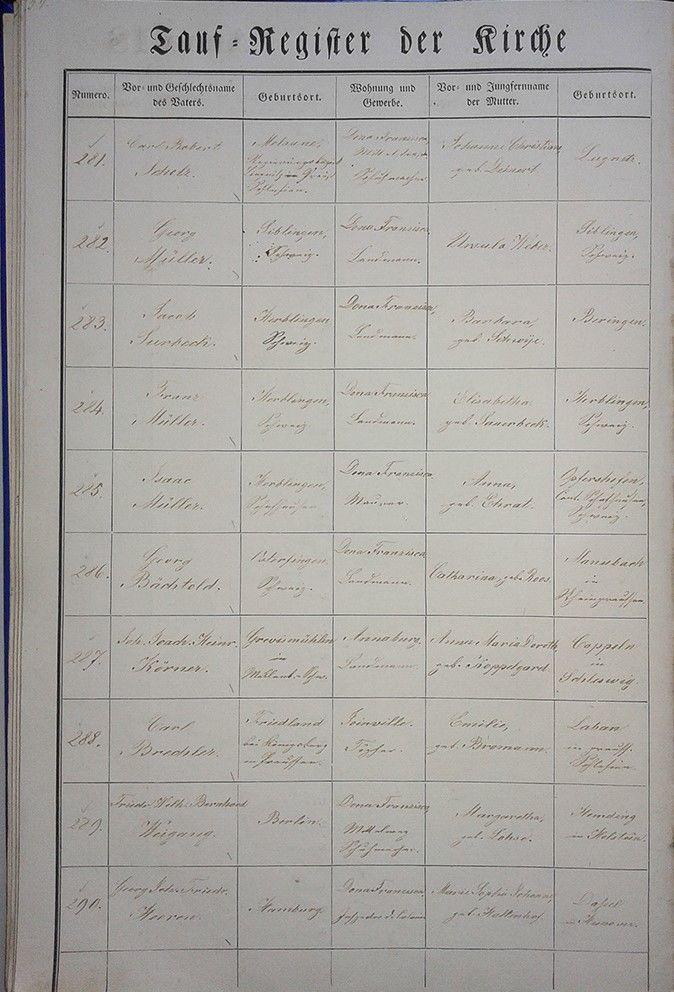 Tauf-Register der Kirche
Numero.
Vor- und Geschlechtsname
des Vaters.
Geburtsort.
Wohnung und
Gewerbe.
Vor- und Jungfernname
der Mutter.
Geburtsort.
281.
Carl Robert
Scholz.
Schlesien.
Dona Francisca,
Schuhmacher.
Johanne Christiane
geb. Deinert.
282.
Georg
Müller.
Siblingen,
Schweiz.
Dona Francisca,
Landmann.
Ursula Weber.
Siblingen,
Schweiz.
283.
Jacob
Surbeck.
Herblingen
Schweiz.
Dona Francisca,
Landmann.
Barbara
geb.
Beringen.
284.
Franz
Müller.
Herblingen,
Schweiz
Dona Francisca
Landmann.
Elisabetha
geb. Sauerbeck.
Herblingen,
Schweiz.
285.
Isaac
Müller.
Herblingen,
Schafhausen
Dona Francisca
Maurer.
Anna,
geb. Ehrat.
Opfershofen,
Cant. Schafhausen,
Schweiz.
286.
Georg
Bächtold.
Schweiz.
Dona Francisca
Landmann.
Catharina, geb. Roos.
Manubach
in
Rheinpreussen.
287.
Joh. Joach. Heinr.
Körner.
Grevismühlen
in
Meklenb.-Schw.
Annaburg.
Landmann.
Anna Maria Doroth.
geb. Koppelgard.
Cappeln
in
Schleswig.
288.
Carl
Brechler.
Friedland
bei Königsberg
in Preussen.
Joinville.
Töpfer.
Emilie,
geb. Bromann.
Laban
in preuss.
Schlesien.
289.
Friedr. Wilh. Bernhard
Weigang.
Berlin.
Dona Francisca
Mittelweg
Schuhmacher.
Margaretha,
geb. Lohse.
Hemding
in Holstein.
290.
Georg Joh. Friedr.
Heeren.
Hamburg.
Dona Francisca,
Inspector d. Colonie
Marie Sophie Johanne
geb. Kattenhof.
Dassel
Hanover.